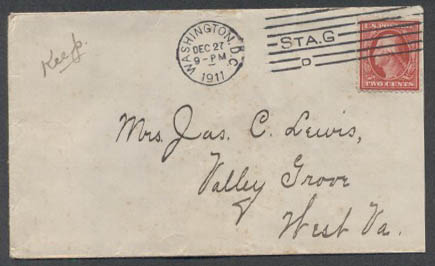 Keep.
WASHINGTON, D.C.
DEC 27
9-PM
1911
STA.G
D
U.S. POSTAGE
TWO CENTS
Mrs. Jas. C. Lewis,
Valley Grove
West Va.